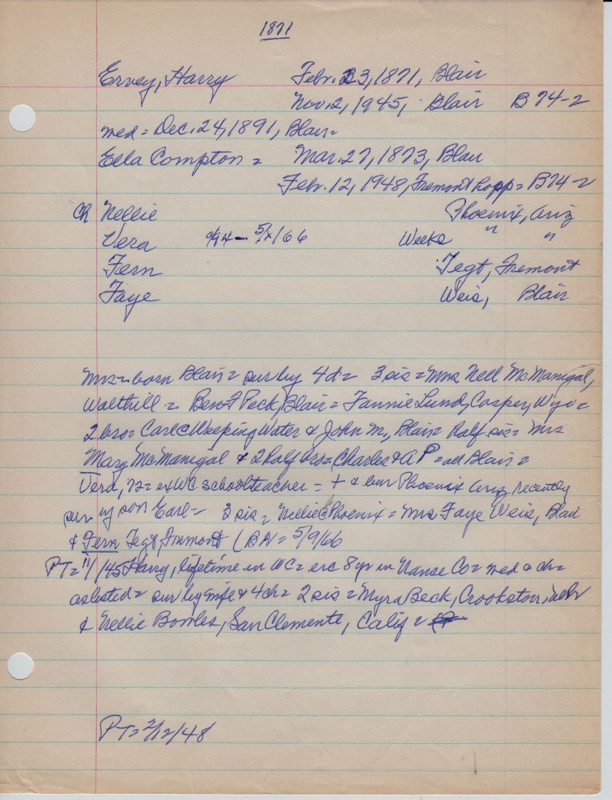 1871
Ervey, Harry Febr. 23, 1871, Blair
Nov. 2, 1945, Blair B 74-2
med = Dec. 24, 1891, Blair =
Ella Compton = Mar. 27, 1873, Blair
Febr. 12, 1948, Fremont hosp = B74-2
Ch Nellie Phoenix, Ariz
Vera 5/4/66 Weeks " "
Fern Tegt, Fremont
Faye Weis, Blair
Mrs = born Blair = sur by 4 d = 3 sis = Mrs Nell McManigal,
Walthill = Ben F Peck, Blair = Fannie Lund, Casper, Wyo =
2 bro = Carl @ Weeping Water & John M, Blair = Half sis = Mrs
Mary McManigal & 2 half bro = Charles & A P = all Blair =
Vera, 72 = ex WC schoolteacher = + & bur Phoenix Ariz, recently
sur by son Earl = 3 sis = Nellie @ Phoenix = Mrs Faye Weis, Blair
& Fern Tegt, Fremont (BA = 5/9/66
PT = 11/ /45 Harry, lifetime in WC = exc 8 yr in Nance Co = med & ch =
as listed = sur by wife & 4 ch = 2 sis = Myra Beck, Crookston, Nebr
& Nellie Bowles, San Clemente, Calif =
PT = 2/12/48